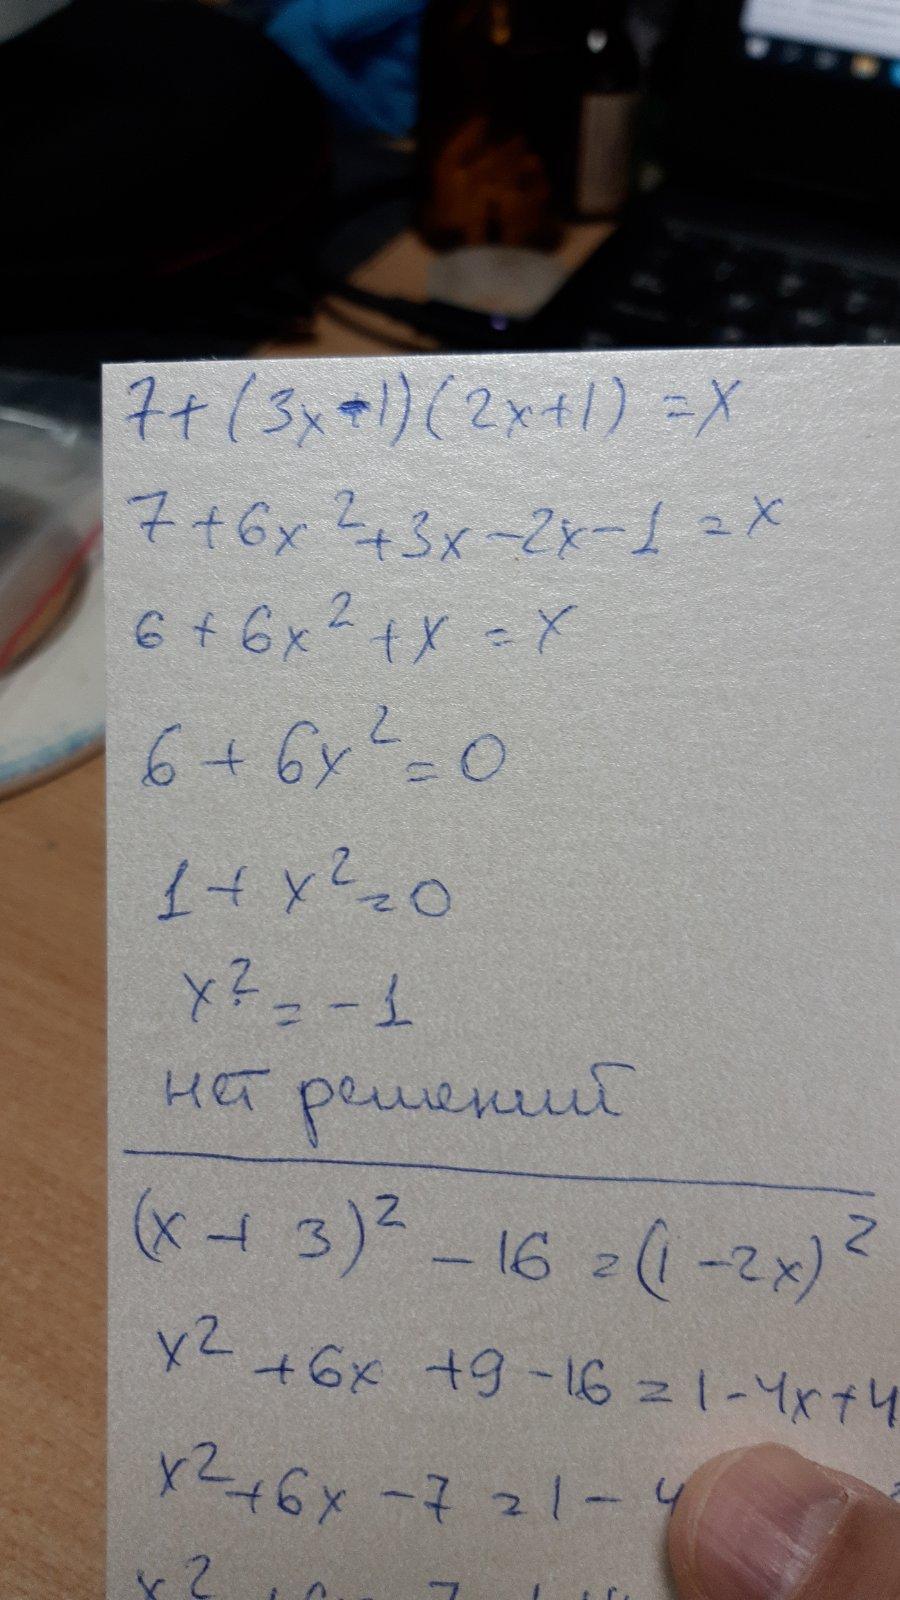 7+(3x-1)(2x+1) =x
7+6x²+3x-2x-1 =x
6+6x²+x =x
6+6x²=0
1+x²=0
x²=-1
нет решений
(x+3)²-16=(1-2x)²
x²+6x+9-16=1-4x+4
x²+6x-7=1-4